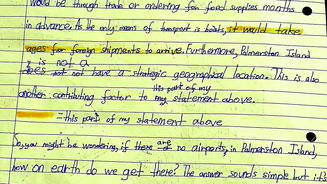 would be through trade or ordering for food supplies months
in advance. As the only means of transport is boats, it would take
ages for foreign shipments to arrive. Furthermore, Palmerston Island
? is not a
does not have a strategic geographical location. This is also
this part of my
another contributing factor to my statement above.
= this part of my statement above
So, you might be wondering, if there are no airports, in Palmerston Island,
how on earth do we get there? The answer sounds simple but it's